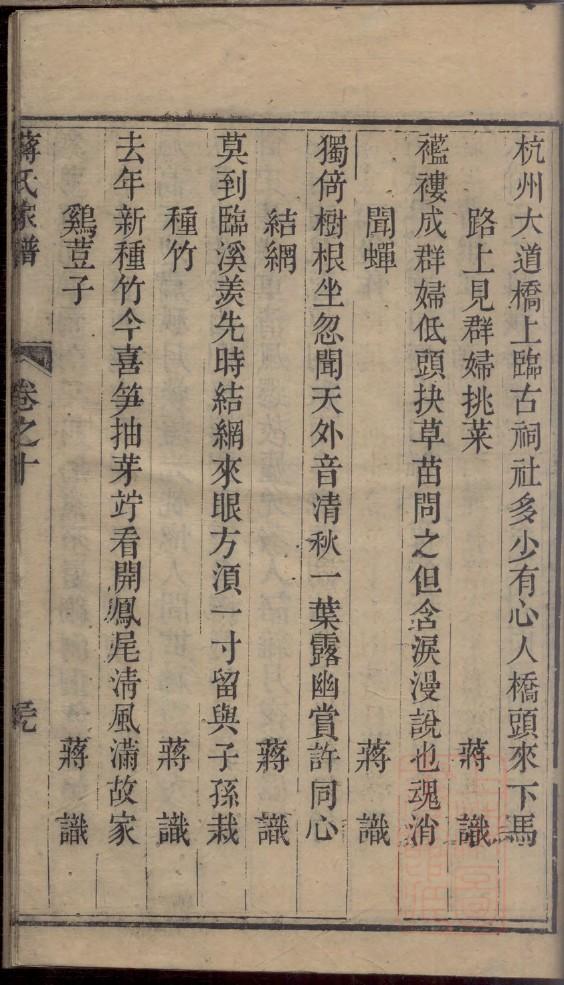 杭州大道橋上臨古祠社多少有心人橋頭來下馬
路上見群婦挑菜　蔣識
襤褸成群婦低頭抉草苗問之但含淚漫說也魂消
聞蟬　蔣識
獨倚樹根坐忽聞天外音清秋一葉露幽賞許同心
結網　蔣識
莫到臨溪羨先時結網來眼方須一寸留與子孫栽
種竹　蔣識
去年新種竹今喜筍抽芽竚看開鳳尾清風滿故家
鷄荳子　蔣識
蔣氏家譜　卷之十